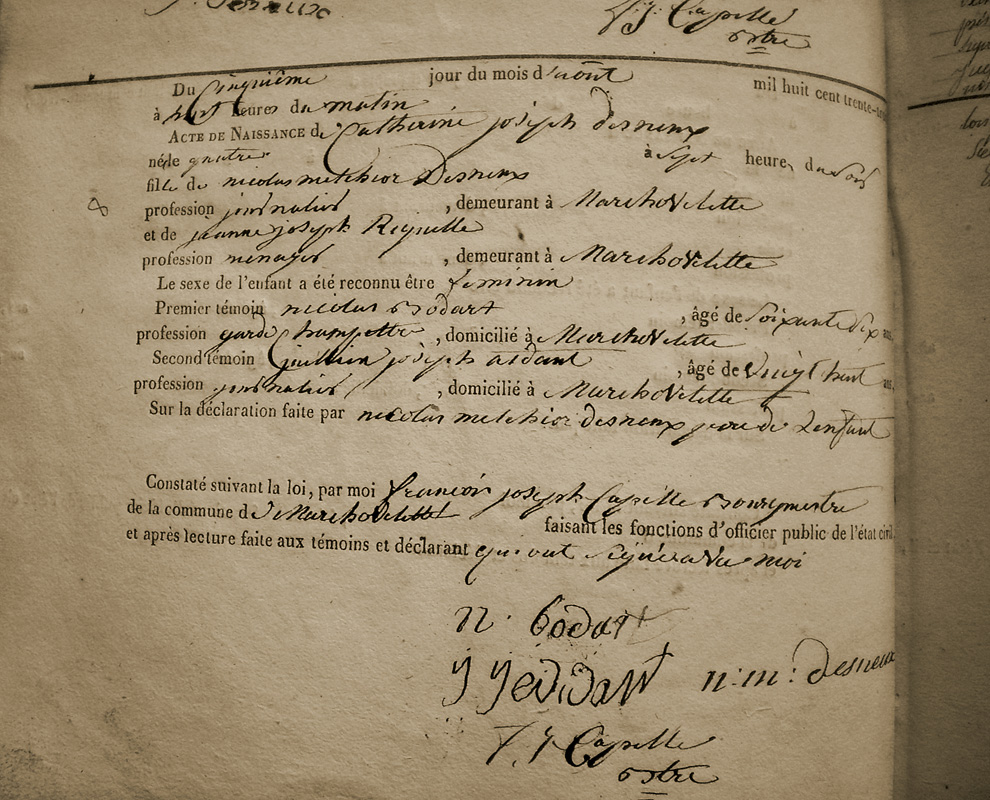 f. j. Capelle
bstre
Du Cinquième jour du mois d'août mil huit cent trente-
à huit heures du matin
ACTE DE NAISSANCE de Catherine joseph desneux
née le quatre à sept heures du soir
fille de nicolas melchior Desneux
profession journalier , demeurant à Marchovelette
et de jeanne joseph Requille
profession , demeurant à Marchovelette
Le sexe de l'enfant a été reconnu être feminin
Premier témoin nicolas Bodart , âgé de soixante dix ans,
profession garde Champettre , domicilié à Marchovelette
Second témoin joseph , âgé de vingt huit ans,
profession journalier , domicilié à Marchovelette
Sur la déclaration faite par nicolas melchior desneux pere de Lenfant
Constaté suivant la loi, par moi francois joseph Capelle Bourgmestre
de la commune de Marchovelette faisant les fonctions d'officier public de l'état civil.
et après lecture faite aux témoins et déclarant qui ont avec moi
n. bodart
n: m: desneux
f. j. Capelle
bstre